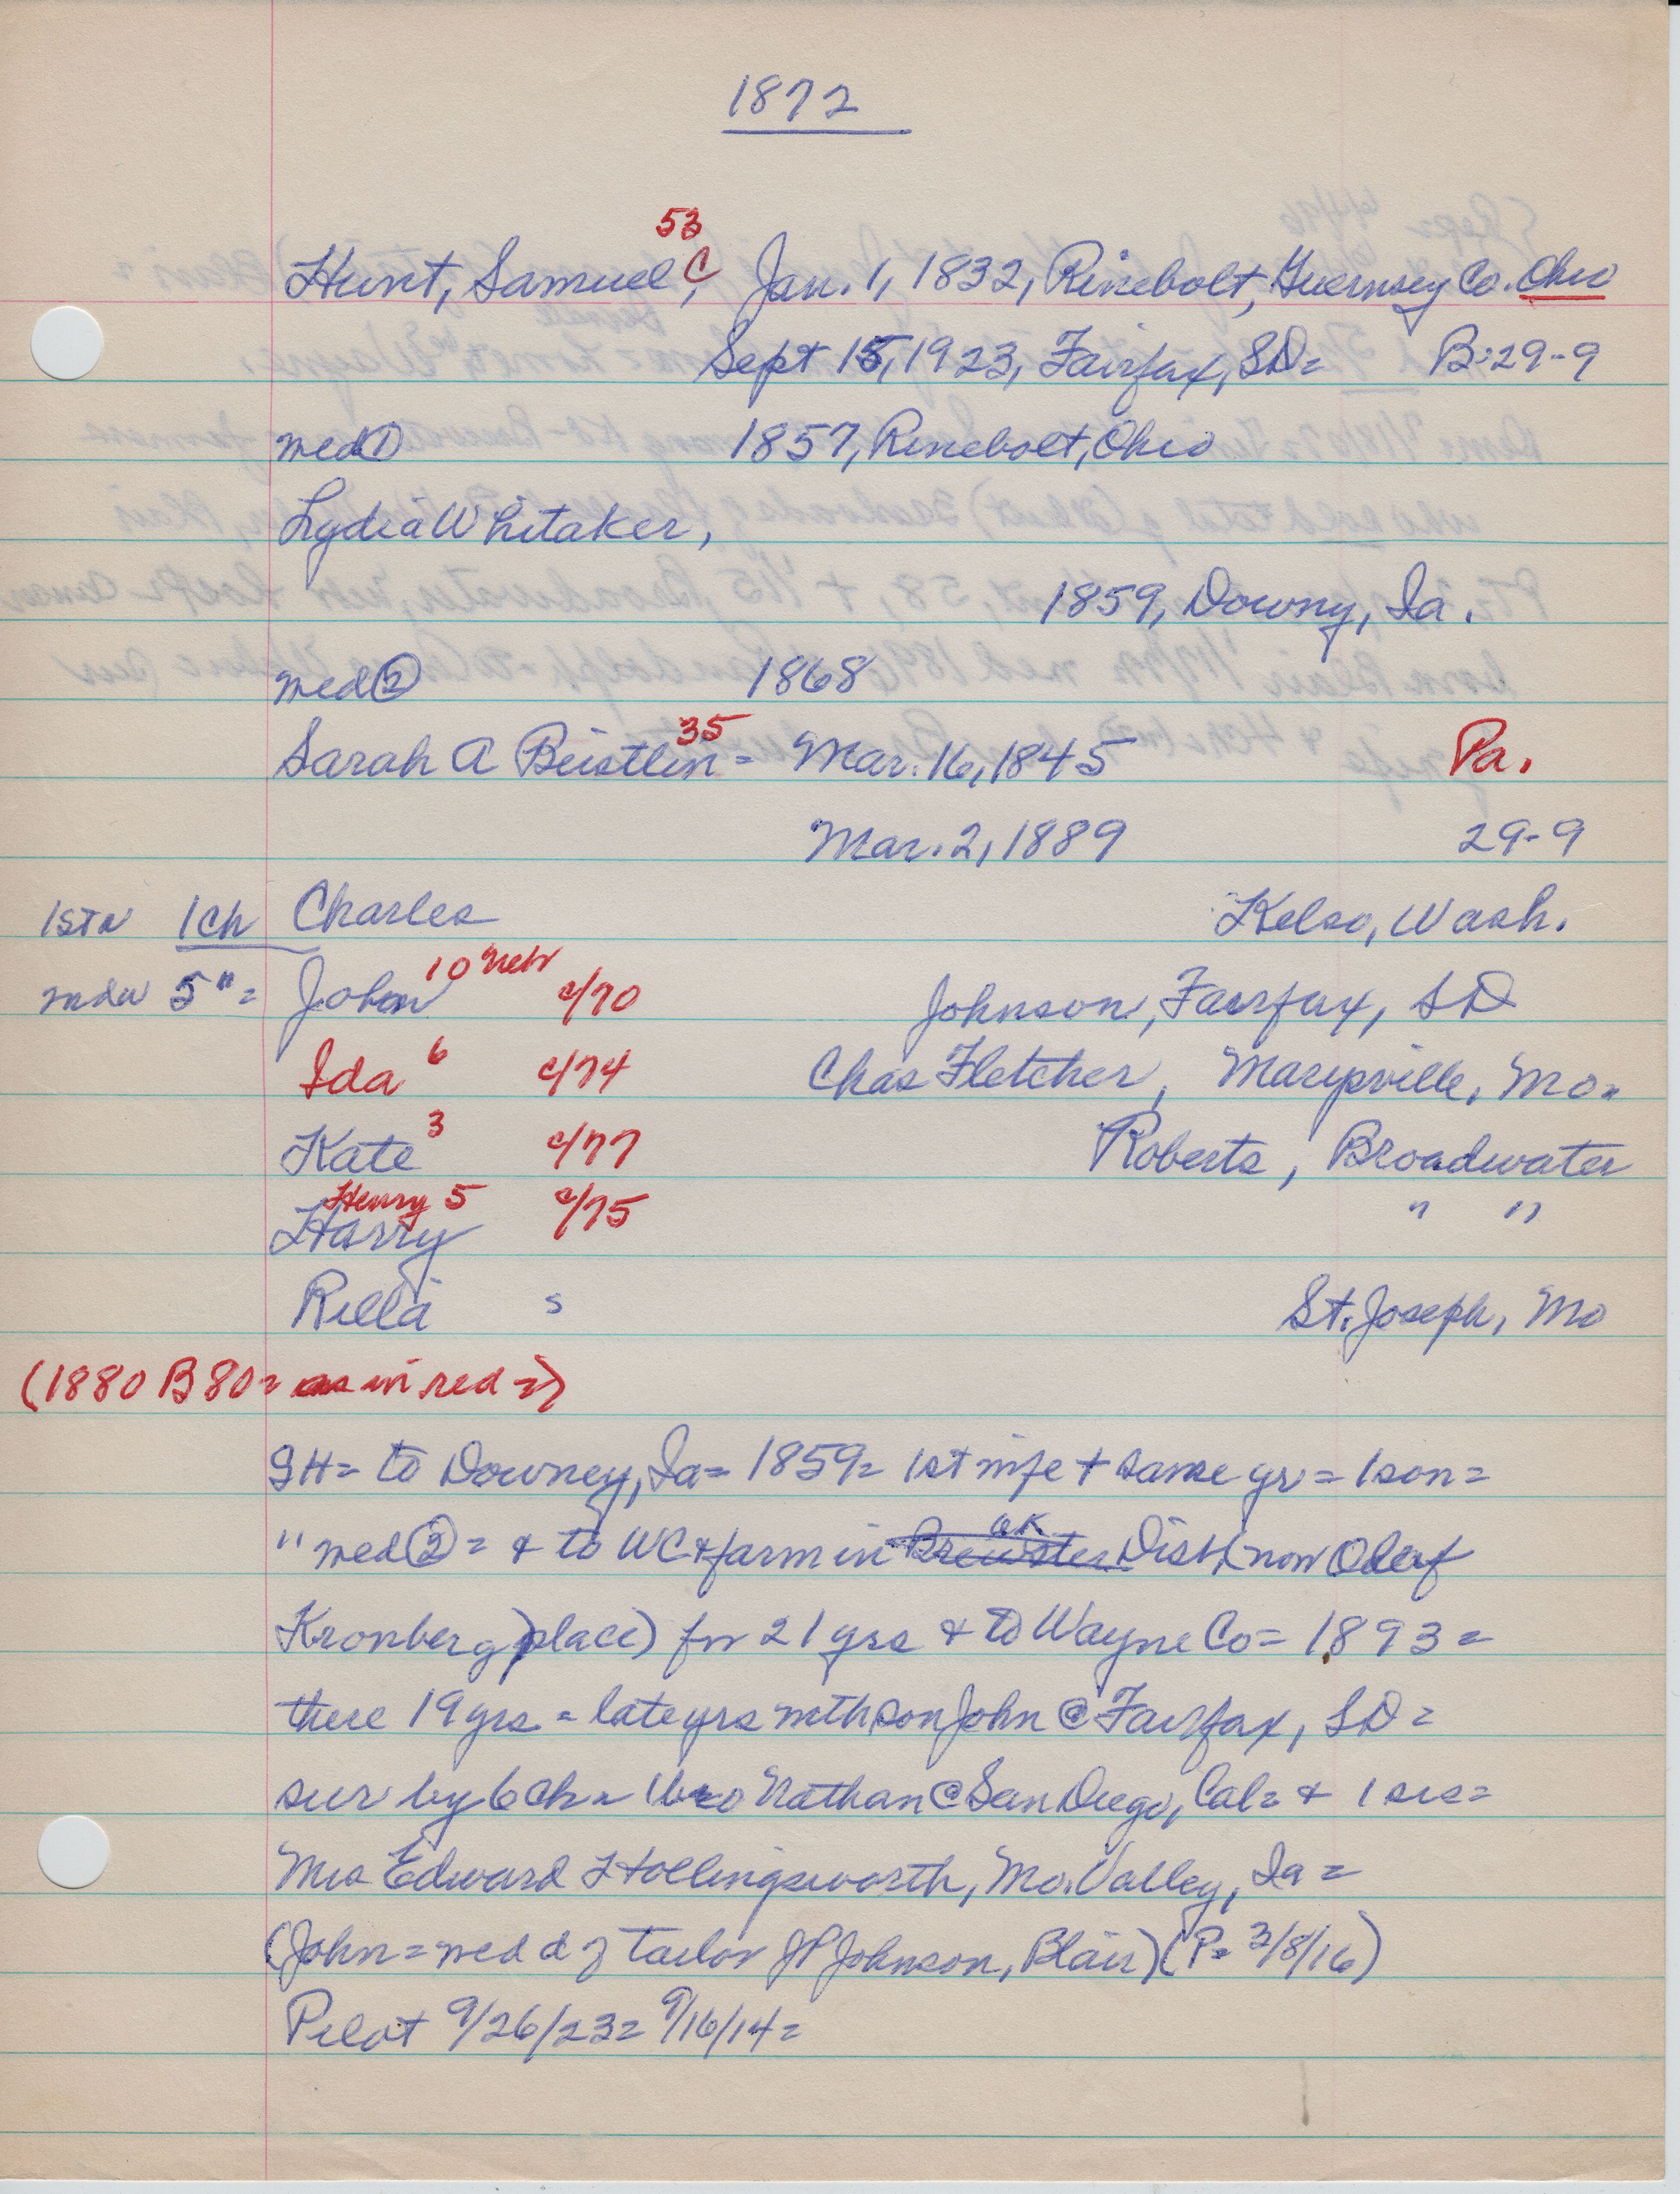 1872
53
Hunt, Samuel, C Jan. 1, 1832, Rinebolt, Guernsey Co. Ohio
Sept 15, 1923, Fairfax, SD= B:29-9
med① 1857, Rinebolt, Ohio
Lydia Whitaker,
1859, Downy, Ia.
med② 1868
Sarah A Beistlin 35 = Mar. 16, 1845 Pa.
Mar. 2, 1889 29-9
1st 1 Ch Charles Kelso, Wash.
5 " = John 10 Neb c/70 Johnson, Fairfax, SD
Ida 6 c/74 Chas Fletcher, Marysville, Mo.
Kate 3 c/77 Roberts, Broadwater
Henry 5 c/75
Harry " "
Rilla s St. Joseph, Mo
(1880 B 80= as in red =)
SH= to Downey, Ia= 1859= 1st wife + same yr = 1 son =
" med② = & to WC & farm in Brewster OK Dist (now Oluf
Kronberg) place) for 21 yrs & to Wayne Co= 1893 =
there 19 yrs = late yrs with son John @ Fairfax, SD =
sur by 6 ch = 1 bro Nathan @ San Diego, Cal= & 1 sis=
Mrs Edward Hollingsworth, Mo. Valley, Ia =
(John = med d of tailor JP Johnson, Blair) (P= 3/8/16)
Pilot 9/26/23= 9/16/14=